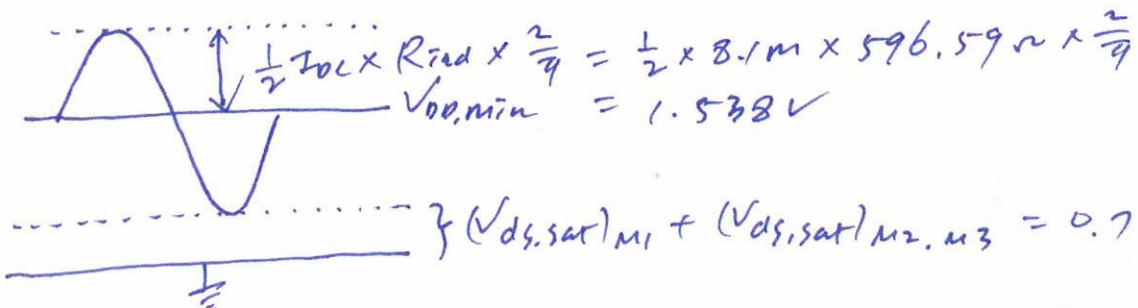 1/2 IDC × Rind × 2/π = 1/2 × 8.1m × 596.59Ω × 2/π
VDD,min = 1.538V
} (Vds,sat)M1 + (Vds,sat)M2,M3 = 0.7